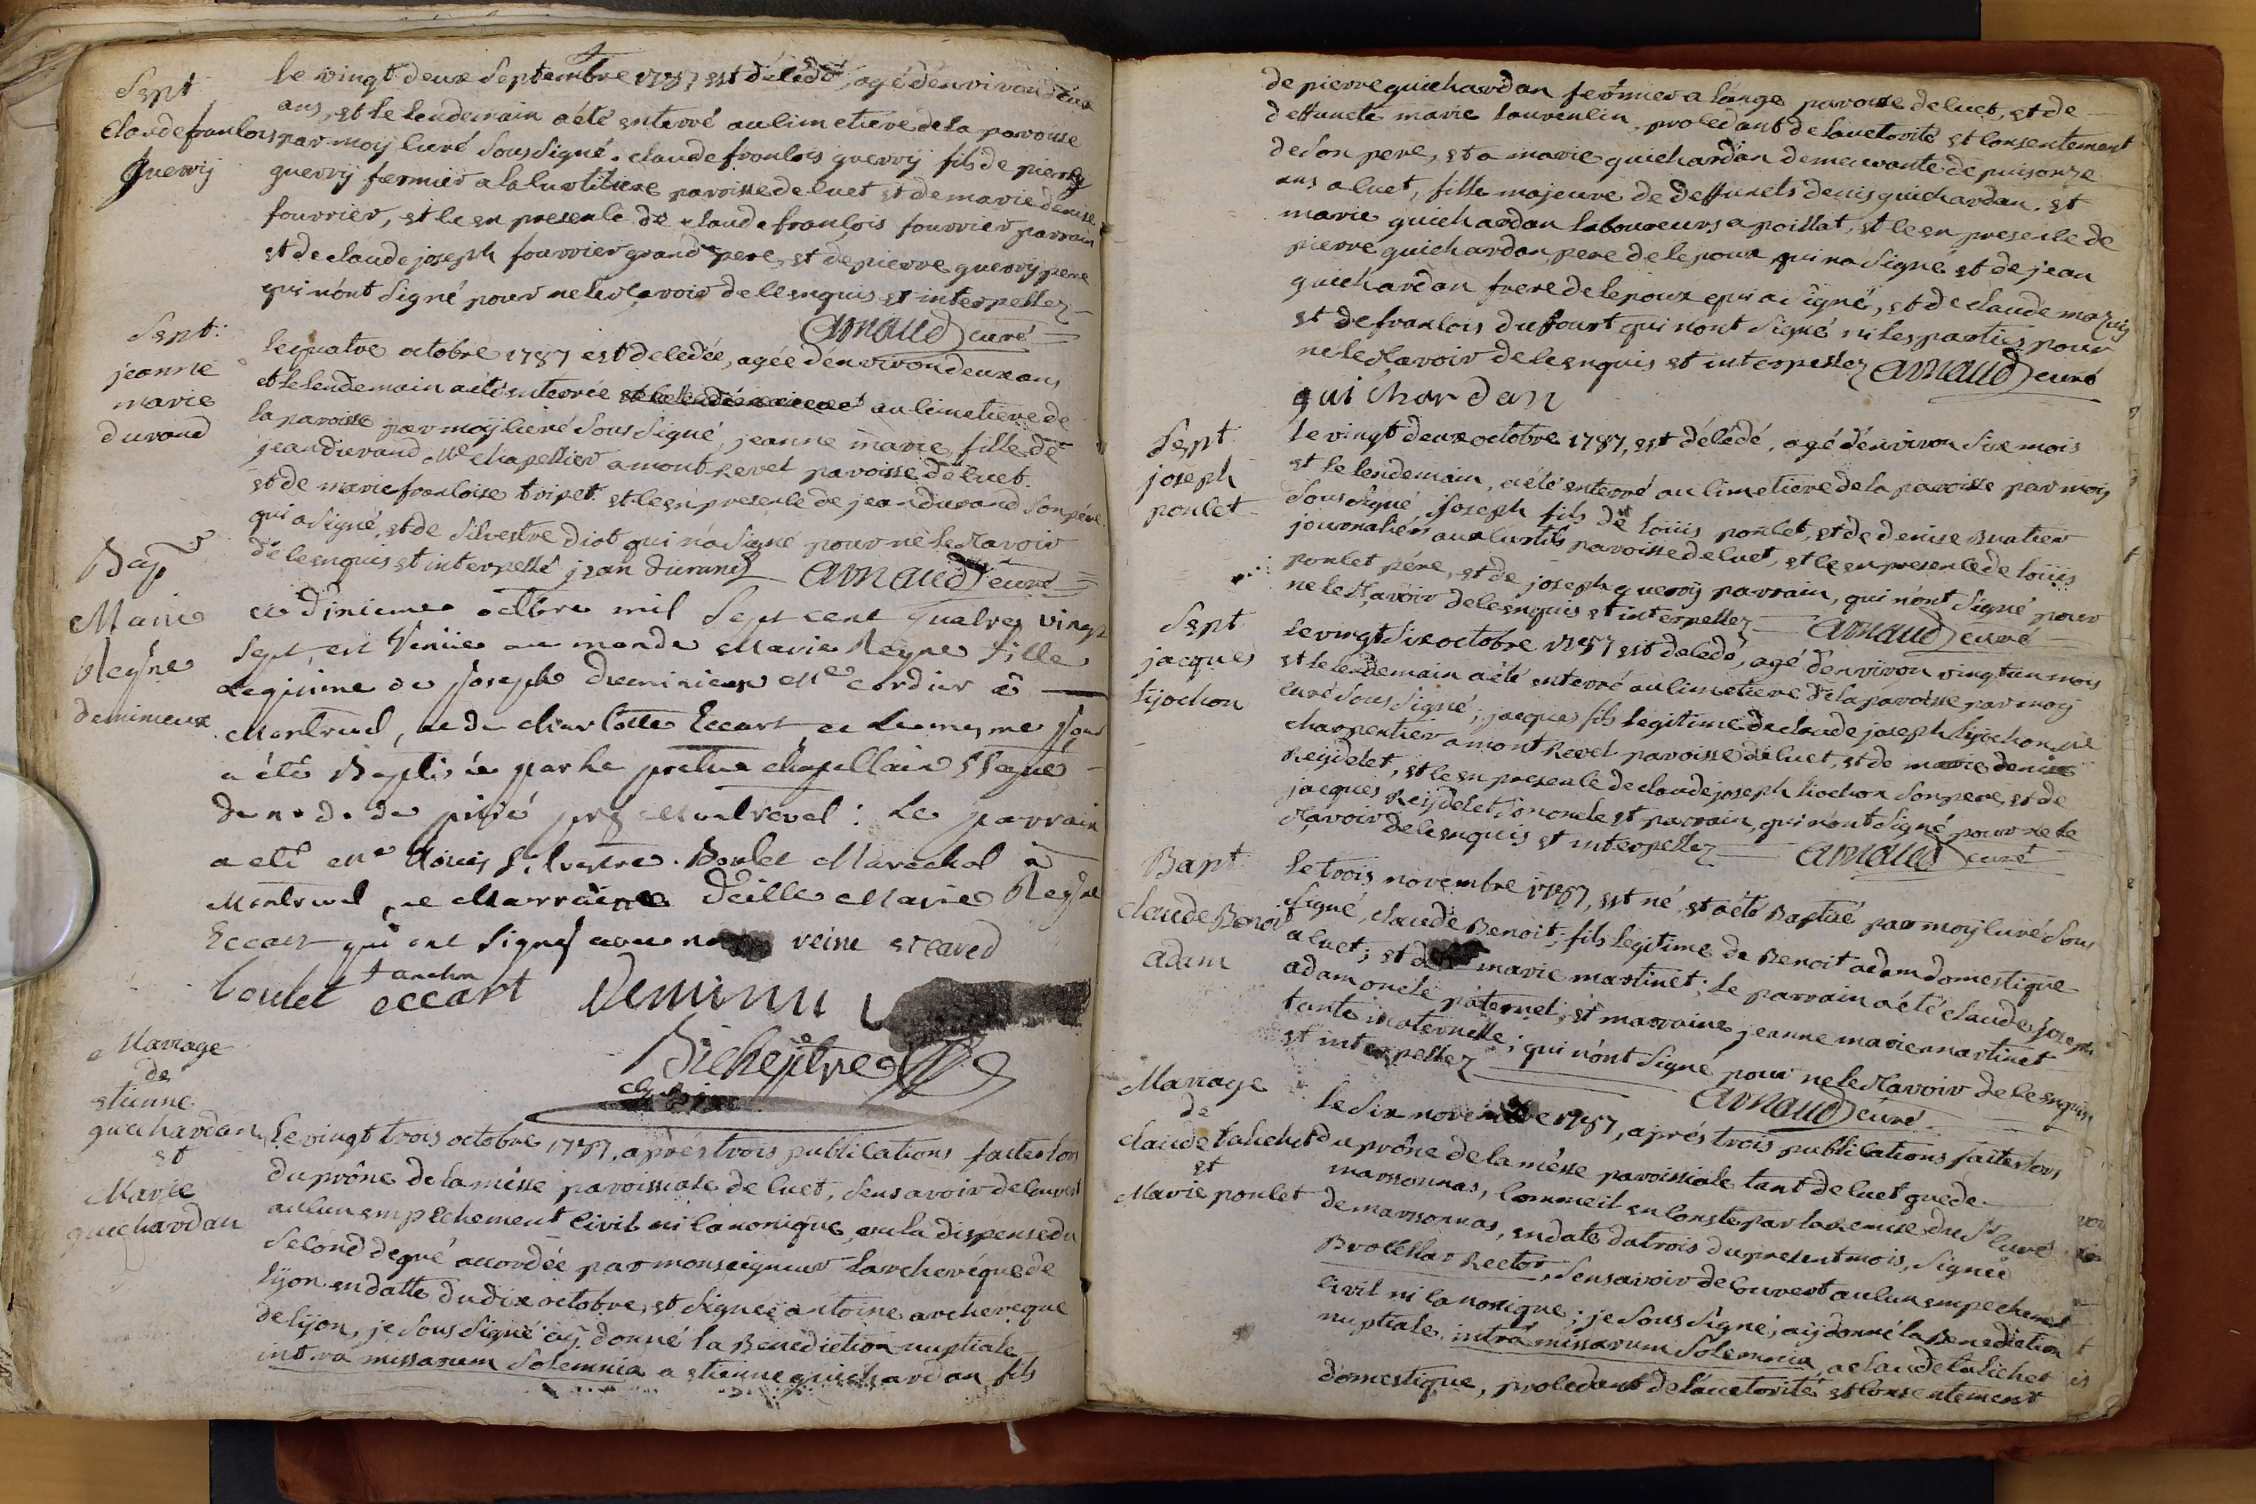 Sept
claude franlois
guerrij
le vingt deux Septembre 1787 est délédé, agé dénviron deux
ans, et le lendemain a été enterré au limetiere de la paroisse
par moij luré Sous Signé. claude franlois guerrij fils de pierre
guerrij fermier a la lurtiliere paroisse de luet et de marie denise
fourrier, et le en presenle de claude franlois fourrier parrain
et de claude joseph fourrier grand pere, et de pierre guerrij pere
qui n'ont Signé pour ne le Sçavoir de le enquis et interpellez
arnaud curé
Sept:
jeanne
marie
durand
le quatre octobre 1787 est deledée, agée dénviron deux ans
et le lendemain a été enterrée au limetiere de
la paroisse par moij luré Sous Signé, jeanne marie, fille de
jean durand Me chapellier a mont revel paroisse de luet.
et de marie franloise tripet. et le en presenle de jean durand Son pére
qui a Signé, et de Silvestre diot qui n'a Signé pour ne le Sçavoir
de le enquis et interpellé jean durand arnaud curé
Bap
Marie
Reyne
deminieux
Le dixieme octbre mil Sept cent quatres vingt
Sept, est Venüe au monde Marie Reyne fille
Legitime de Joseph Deminieux Me cordier à
Montrevel, et de Charlotte Eccart et le mesme Jour
a été Baptisée par le pretre chapellain
de n. d. de pitié prez Montrevel: Le parrain
a eté Me Louis Silvestre Boulet Marechal à
Montrevel, et Marraine Deille Marie Reyne
Eccart qui ont Signés avec
boulet eccart Deminieu
Bichepetre
Mariage
de
etienne
guichardan
et
Marie
guichardan
Le vingt trois octobre 1787, aprés trois publilations faites lors
du prône de la messe paroissiale de luet, Sens avoir délouvert
aulun empelhement livil ni lanonique, vu la dispense du
Selond degré accordée par monseigneur larchevéque de
lijon en datte du dix octobre, et Signée antoine archeveque
de lijon, je Sous Signé aij donné la Benediction nuptiale
intra missarum Solemnia a etienne guichardan fils
de pierre guichardan fermier a lange paroisse de luet, et de
deffuncte marie laurenlin, proledant de lauctorité et lonsentement
de Son pere, et a marie guichardan demeurante depuis onze
ans a luet, fille majeure de deffuncts denis guichardan. et
marie guichardan laboureurs a poillat, et le en presenle de
pierre guichardan pere de lepoux qui n'a Signé et de jean
guichardan frere de lepoux qui a Signé, et de claude mazuij
et de franlois dufourt qui n'ont Signé ni les parties pour
ne le Sçavoir de le enquis et interpellez arnaud curé
guichardan
Sept
joseph
poulet
le vingt deux octobre 1787, est délédé, agé dénviron Six mois
et le lendemain, a été enterré au limetiere de la paroisse par moij
Sous Signé, joseph fils de loüis poulet, et de denise Buatier
journaliers aux lurtils paroisse de luet, et le en presenle de loüis
poulet pére, et de joseph guerrij parrain, qui n'ont Signé pour
ne le Sçavoir de le enquis et interpellez arnaud curé
Sept
jacques
lijochon
le vingt Six octobre 1787 est deledé, agé d'environ vingt un mois
et le lendemain a été enterré au limetiere de la paroisse par moij
curé Sous Signé; jacques fils legitime de claude joseph lijochon Me
charpentier a mont Revel paroisse de luet, et de marie denise
Reijdelet, et le en presenle de claude joseph liochon Son pere, et de
jacques Reijdelet Son oncle et parrain, qui n'ont Signé pour ne le
Sçavoir de le enquis et interpellez arnaud curé
Bapt
claude Benoit
adam
le trois novembre 1787, est né, et a été Baptisé par moij luré Sous
Signé, claude Benoit, fils legitime de Benoit adam domestique
a luet; et de marie martinet; le parrain a été claude joseph
adam oncle paternel, et marraine jeanne marie martinet
tante maternelle; qui n'ont Signé pour ne le Sçavoir de le enquis
et interpellez arnaud curé
Mariage
de
claude talichet
et
Marie poulet
le Six novembre 1787, aprés trois publilations faites lors
du prône de la mésse paroissiale tant de luet que de
marssonnas, lomme il en lonste par la remise du Sr luré
de marssonnas, en date du trois du present mois, Signée
Brollhar Rector, Sens avoir delouvert aulun empechemet
livil ni lanonique; je Sous Signé, aij donné la Benediction
nuptiale. intrà missarum Solemnia, a claude talichet
domestique, proledant de l'auctorité et lonsentement